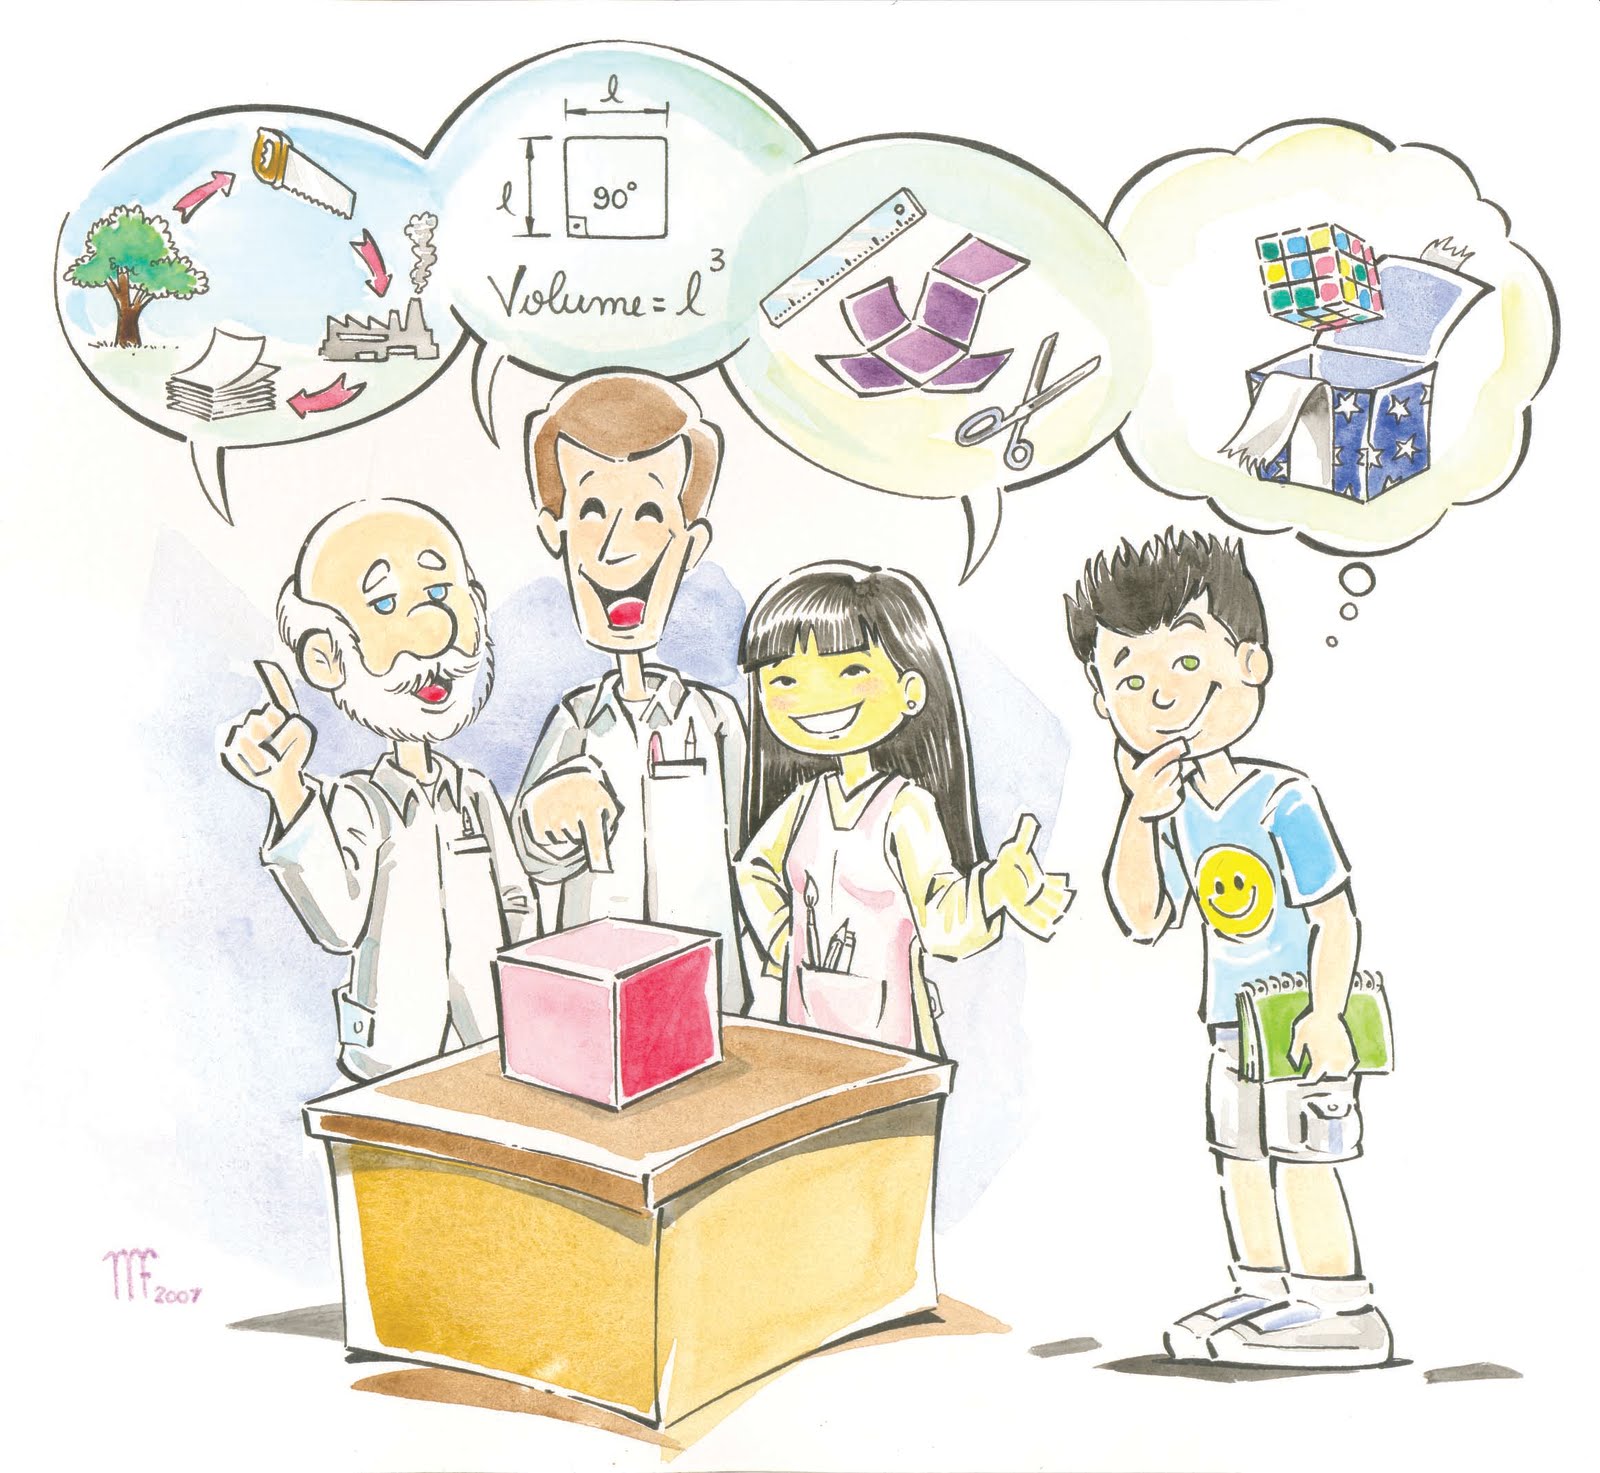 l
l
90°
Volume = l³
MF 2007